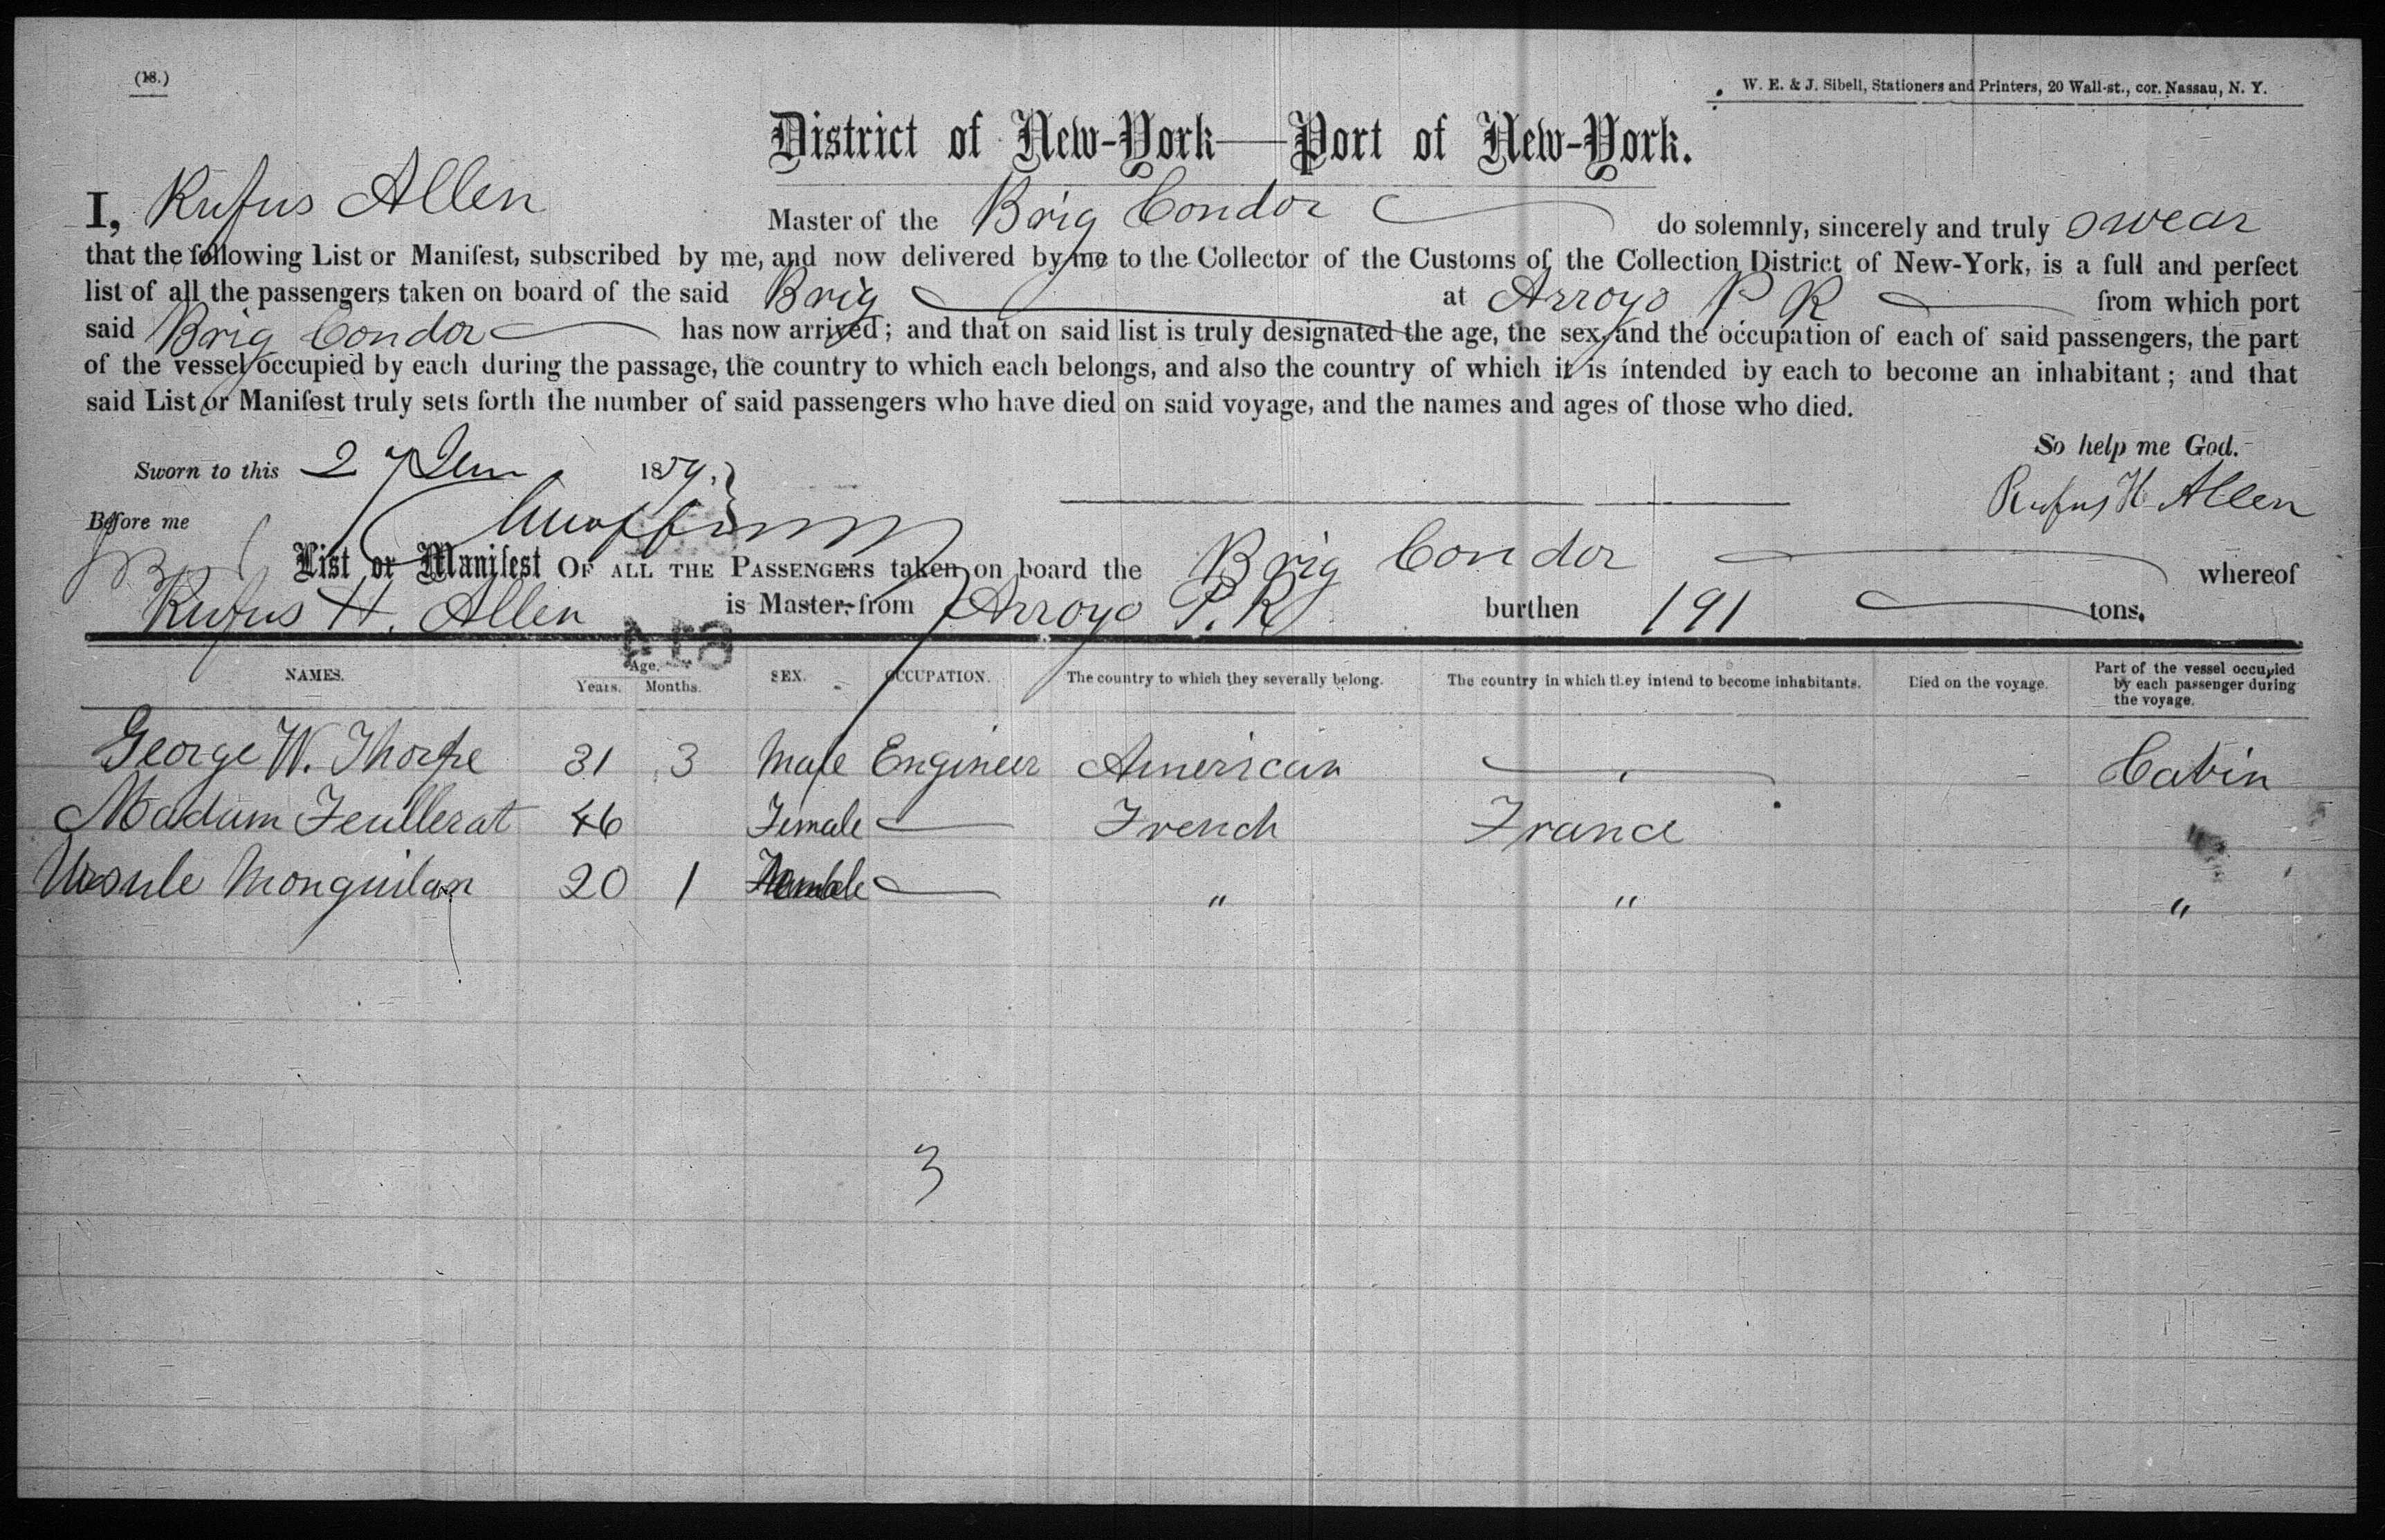 (18.)
W. E. & J. Sibell, Stationers and Printers, 20 Wall-st., cor. Nassau, N. Y.
District of New-York—Port of New-York.
I, Rufus Allen Master of the Brig Condor do solemnly, sincerely and truly swear
that the following List or Manifest, subscribed by me, and now delivered by me to the Collector of the Customs of the Collection District of New-York, is a full and perfect
list of all the passengers taken on board of the said Brig at Arroyo P R from which port
said Brig Condor has now arrived; and that on said list is truly designated the age, the sex, and the occupation of each of said passengers, the part
of the vessel occupied by each during the passage, the country to which each belongs, and also the country of which it is intended by each to become an inhabitant; and that
said List or Manifest truly sets forth the number of said passengers who have died on said voyage, and the names and ages of those who died.
So help me God.
Sworn to this 27 1859.
Rufus H Allen
Before me
List or Manifest OF ALL THE PASSENGERS taken on board the Brig Condor whereof
Rufus H. Allen is Master, from Arroyo P. R burthen 191 tons.
NAMES. Age. Years. Months. SEX. OCCUPATION. The country to which they severally belong. The country in which they intend to become inhabitants. Died on the voyage. Part of the vessel occupied by each passenger during the voyage.
George W. Thorpe 31 3 Male Engineer American — Cabin
Madam Feullerat 46 Female — French France
Ursule Monguilan 20 1 Female — " " "
3